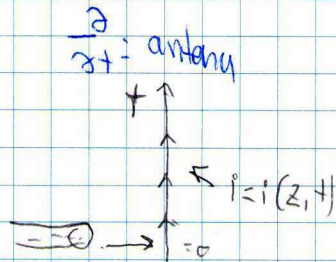 ∂/∂t = antena
+
i = i(z, t)
= 0